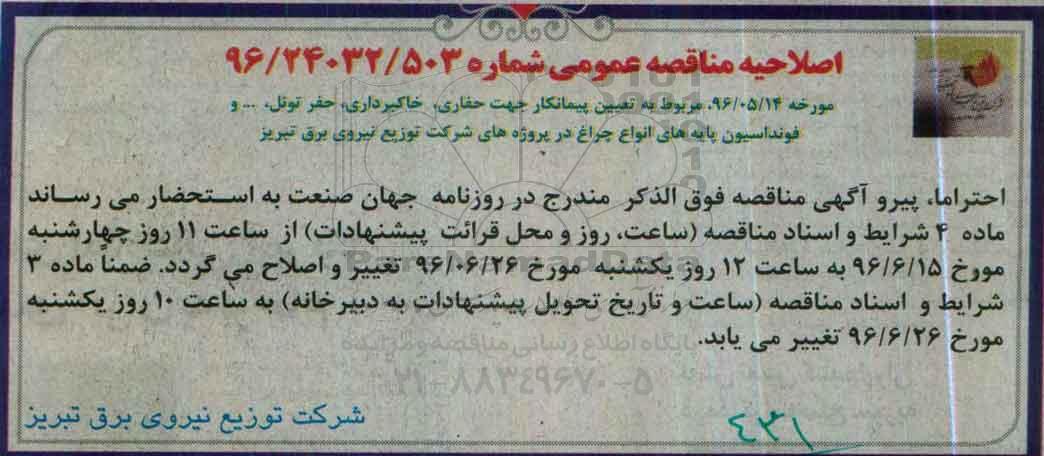 اصلاحیه مناقصه عمومی شماره ۹۶/۲۴۰۳۲/۵۰۳
مورخه ۹۶/۰۵/۱۴، مربوط به تعیین پیمانکار جهت حفاری، خاکبرداری، حفر تونل، ... و
فونداسیون پایه های انواع چراغ در پروژه های شرکت توزیع نیروی برق تبریز
احتراما، پیرو آگهی مناقصه فوق الذکر مندرج در روزنامه جهان صنعت به استحضار می رساند
ماده ۴ شرایط و اسناد مناقصه (ساعت، روز و محل قرائت پیشنهادات) از ساعت ۱۱ روز چهارشنبه
مورخ ۹۶/۶/۱۵ به ساعت ۱۲ روز یکشنبه مورخ ۹۶/۰۶/۲۶ تغییر و اصلاح می گردد. ضمناً ماده ۳
شرایط و اسناد مناقصه (ساعت و تاریخ تحویل پیشنهادات به دبیرخانه) به ساعت ۱۰ روز یکشنبه
مورخ ۹۶/۶/۲۶ تغییر می یابد.
پایگاه اطلاع رسانی مناقصه و مزایده
۰۲۱-۸۸۳۴۹۶۷۰-۵
شرکت توزیع نیروی برق تبریز
۴۳۱